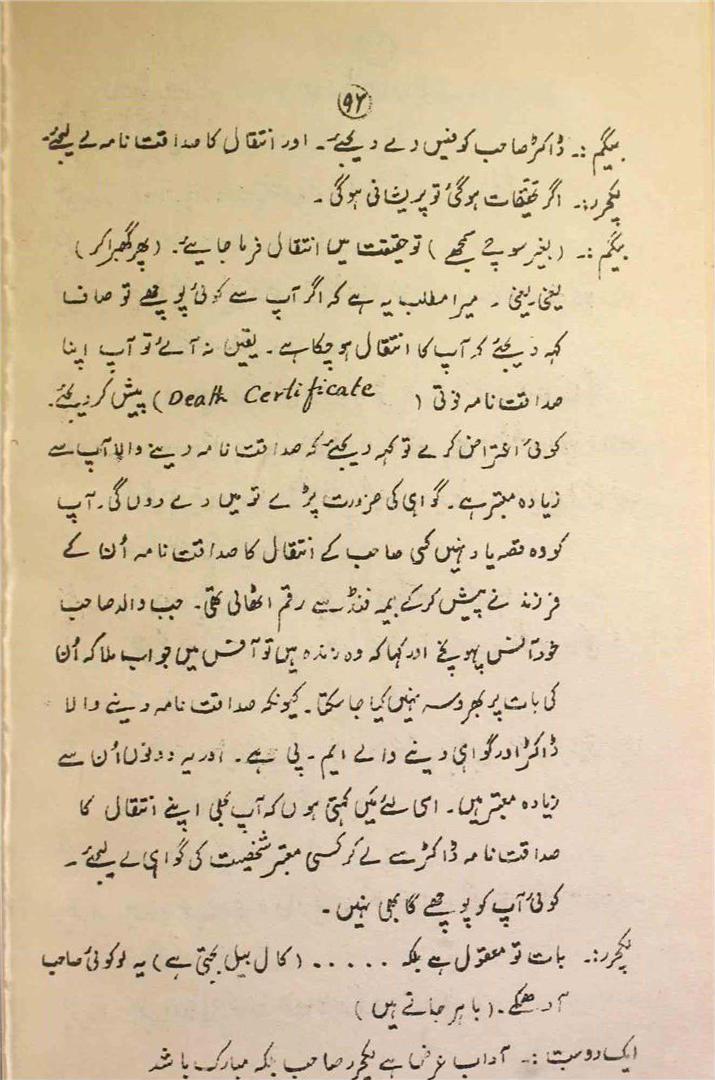 ۹۶
بیگم :۔ ڈاکٹر صاحب کو فیس دے دیجئے۔ اور انتقال کا صداقت نامہ لے لیجئے۔
لیکچرر:۔ اگر تحقیقات ہوگئی تو پریشانی ہوگی ۔
بیگم :۔ (بغیر سوچے سمجھے) تو حقیقت میں انتقال فرما جایئے۔ (پھر گھبرا کر)
یعنی یعنی ۔ میرا مطلب یہ ہے کہ اگر آپ سے کوئی پوچھے تو صاف
کہہ دیجئے کہ آپ کا انتقال ہوچکا ہے ۔ یقین نہ آئے تو آپ اپنا
صداقت نامہ فوتی (Death Certificate) پیش کردیجئے۔
کوئی اعتراض کرے تو کہہ دیجئے کہ صداقت نامہ دینے والا آپ سے
زیادہ معتبر ہے ۔ گواہی کی ضرورت پڑے تو میں دے دوں گی ۔ آپ
کو وہ قصہ یاد نہیں کسی صاحب کے انتقال کا صداقت نامہ اُن کے
فرزند نے پیش کرکے بیمہ فنڈ سے رقم اٹھالی تھی ۔ جب والد صاحب
خود آفس پہونچے اور کہا کہ وہ زندہ ہیں تو آفس میں جواب ملا کہ اُن
کی بات پر بھروسہ نہیں کیا جاسکتا ۔ کیونکہ صداقت نامہ دینے والا
ڈاکٹر اور گواہی دینے والے ایم ۔ پی تھے ۔ اور یہ دونوں اُن سے
زیادہ معتبر ہیں ۔ اسی لئے میں کہتی ہوں کہ آپ بھی اپنے انتقال کا
صداقت نامہ ڈاکٹر سے لے کر کسی معتبر شخصیت کی گواہی لے لیجئے ۔
کوئی آپ کو پوچھے گا بھی نہیں ۔
لیکچرر:۔ بات تو معقول ہے بلکہ ..... (کال بیل بجتی ہے) یہ لو کوئی صاحب
آدھمکے ۔ (باہر جاتے ہیں)
ایک دوست :۔ آداب عرض ہے لیکچرر صاحب بلکہ مبارک باشد